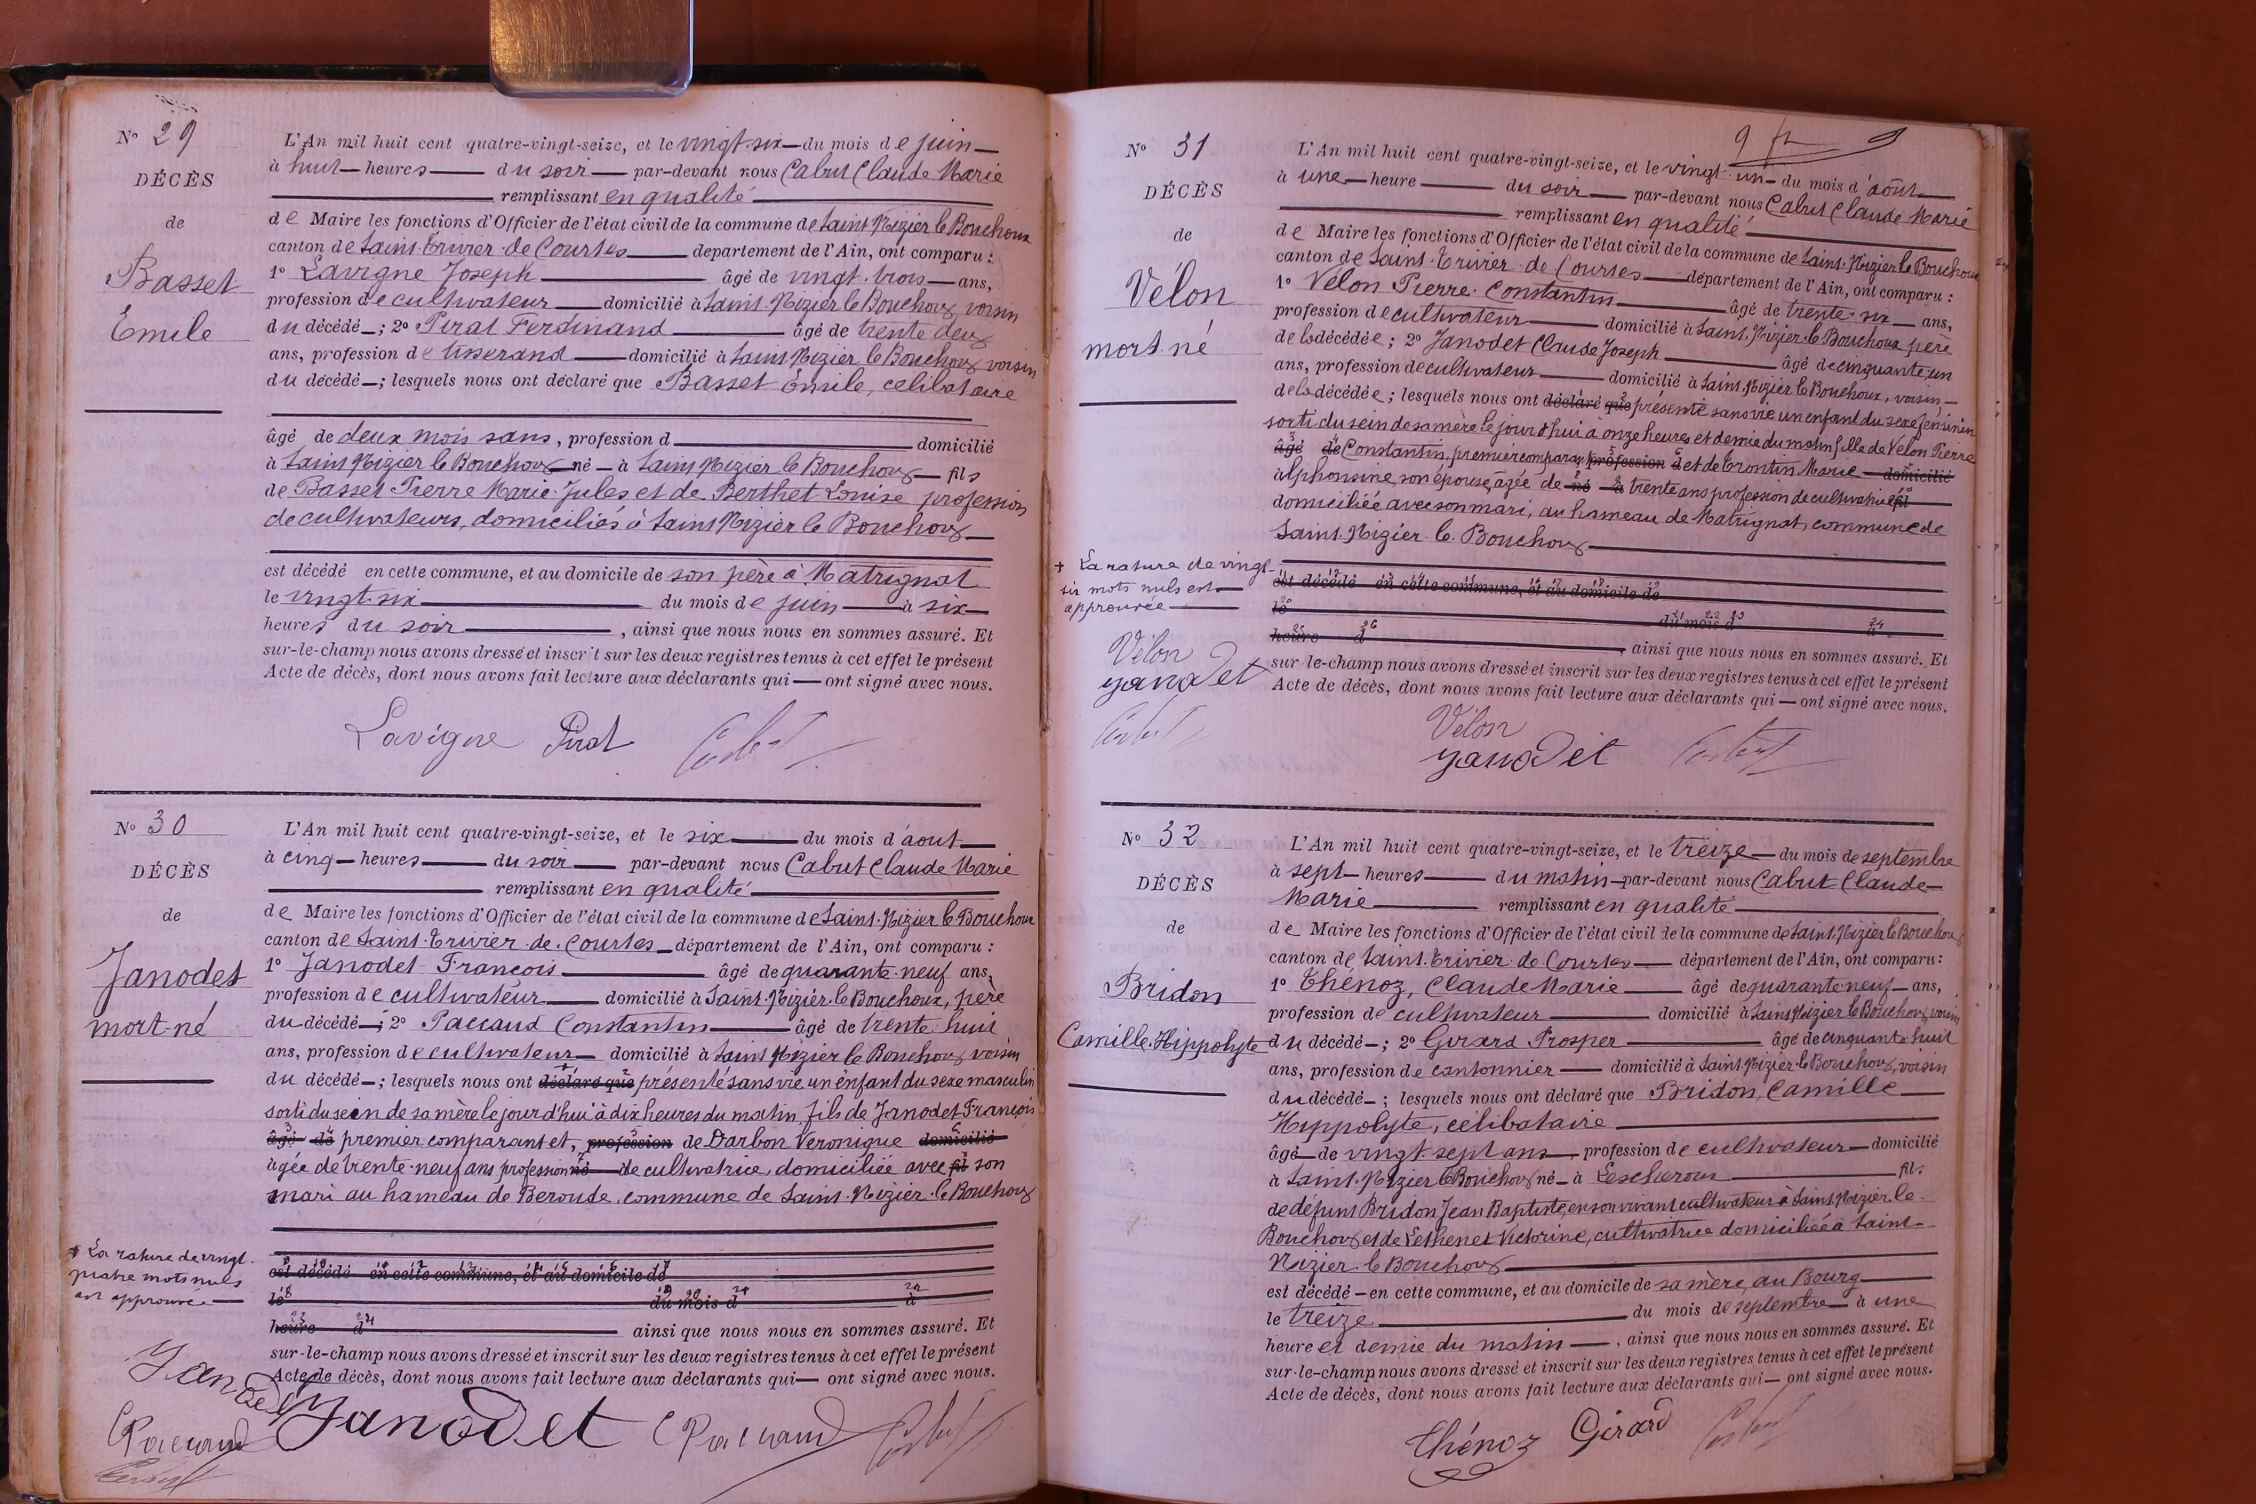 Nº 29
DÉCÈS
de
Basset
Emile
L'An mil huit cent quatre-vingt-seize, et le vingt-six du mois de juin
à huit heures du soir par-devant nous Cabut Claude Marie
remplissant en qualité
de Maire les fonctions d'Officier de l'état civil de la commune de Saint Nizier le Bouchoux
canton de Saint-Trivier-de-Courtes département de l'Ain, ont comparu :
1º Lavigne Joseph âgé de vingt-trois ans,
profession de cultivateur domicilié à Saint-Nizier le Bouchoux voisin
du décédé ; 2º Pirat Ferdinand âgé de trente deux
ans, profession de tisserand domicilié à Saint Nizier le Bouchoux voisin
du décédé ; lesquels nous ont déclaré que Basset Emile, célibataire
âgé de deux mois sans, profession d domicilié
à Saint Nizier le Bouchoux né à Saint Nizier le Bouchoux fils
de Basset Pierre Marie Jules et de Berthet Louise profession
de cultivateurs, domiciliés à Saint Nizier le Bouchoux
est décédé en cette commune, et au domicile de son père à Matrignat
le vingt-six du mois de juin à six
heures du soir, ainsi que nous nous en sommes assuré. Et
sur-le-champ nous avons dressé et inscrit sur les deux registres tenus à cet effet le présent
Acte de décès, dont nous avons fait lecture aux déclarants qui ont signé avec nous.
Lavigne Pirat
Nº 30
DÉCÈS
de
Janodet
mort-né
L'An mil huit cent quatre-vingt-seize, et le six du mois d'août
à cinq heures du soir par-devant nous Cabut Claude Marie
remplissant en qualité
de Maire les fonctions d'Officier de l'état civil de la commune de Saint-Nizier le Bouchoux
canton de Saint-Trivier-de-Courtes département de l'Ain, ont comparu :
1º Janodet François âgé de quarante-neuf ans,
profession de cultivateur domicilié à Saint-Nizier-le Bouchoux, père
du décédé ; 2º Paccaud Constantin âgé de trente-huit
ans, profession de cultivateur domicilié à Saint Nizier le Bouchoux voisin
du décédé ; lesquels nous ont déclaré que présenté sans vie un enfant du sexe masculin
sorti du sein de sa mère le jour d'hui à dix heures du matin, fils de Janodet François
âgé de premier comparant et, profession de Darbon Veronique domicilié
âgée de trente-neuf ans profession né de cultivatrice, domiciliée avec fil son
mari au hameau de Beroude, commune de Saint-Nizier-le Bouchoux
+ La rature de vingt-
quatre mots nuls
est approuvée
est décédé en cette commune, et au domicile de
le du mois d à
heure d ainsi que nous nous en sommes assuré. Et
sur-le-champ nous avons dressé et inscrit sur les deux registres tenus à cet effet le présent
Acte de décès, dont nous avons fait lecture aux déclarants qui ont signé avec nous.
Janodet
Paccaud
Janodet Paccaud
Nº 31
DÉCÈS
de
Vélon
mort-né
L'An mil huit cent quatre-vingt-seize, et le vingt-un du mois d'août
à une heure du soir par-devant nous Cabut Claude Marie
remplissant en qualité
de Maire les fonctions d'Officier de l'état civil de la commune de Saint-Nizier le Bouchoux
canton de Saint-Trivier-de Courtes département de l'Ain, ont comparu :
1º Vélon Pierre-Constantin âgé de trente-six ans,
profession de cultivateur domicilié à Saint-Nizier-le Bouchoux père
de la décédée ; 2º Janodet Claude Joseph âgé de cinquante-un
ans, profession de cultivateur domicilié à Saint-Nizier le Bouchoux, voisin
de la décédée ; lesquels nous ont déclaré que présenté sans vie un enfant du sexe féminin
sorti du sein de sa mère le jour d'hui à onze heures et demie du matin fille de Vélon Pierre
âgé de Constantin, premier comparant, profession d et de Trontin Marie domicilié
alphonsine, son épouse, âgée de né à trente ans profession de cultivatrice fil
domiciliée avec son mari, au hameau de Matrignat, commune de
Saint-Nizier-le Bouchoux
+ La rature de vingt-
six mots nuls est
approuvée
est décédé en cette commune, et au domicile de
le du mois d à
heure d, ainsi que nous nous en sommes assuré. Et
sur-le-champ nous avons dressé et inscrit sur les deux registres tenus à cet effet le présent
Acte de décès, dont nous avons fait lecture aux déclarants qui ont signé avec nous.
Vélon
Yanodet
Vélon
Yanodet
Nº 32
DÉCÈS
de
Bridon
Camille-Hippolyte
L'An mil huit cent quatre-vingt-seize, et le treize du mois de septembre
à sept heures du matin par-devant nous Cabut Claude
Marie remplissant en qualité
de Maire les fonctions d'Officier de l'état civil de la commune de Saint-Nizier le Bouchoux
canton de Saint-Trivier-de Courtes département de l'Ain, ont comparu :
1º Thénoz, Claude Marie âgé de quarante-neuf ans,
profession de cultivateur domicilié à Saint Nizier le Bouchoux, voisin
du décédé ; 2º Girard Prosper âgé de cinquante-huit
ans, profession de cantonnier domicilié à Saint Nizier-le Bouchoux, voisin
du décédé ; lesquels nous ont déclaré que Bridon, Camille
Hippolyte, célibataire
âgé de vingt-sept ans, profession de cultivateur domicilié
à Saint-Nizier le Bouchoux né à Lescheroux fils
de défunt Bridon Jean Baptiste, en son vivant cultivateur à Saint Nizier le
Bouchoux et de Lethenet Victorine, cultivatrice domiciliée à Saint-
Nizier-le Bouchoux
est décédé en cette commune, et au domicile de sa mère, au Bourg
le treize du mois de septembre à une
heure et demie du matin, ainsi que nous nous en sommes assuré. Et
sur-le-champ nous avons dressé et inscrit sur les deux registres tenus à cet effet le présent
Acte de décès, dont nous avons fait lecture aux déclarants qui ont signé avec nous.
Thénoz Girard